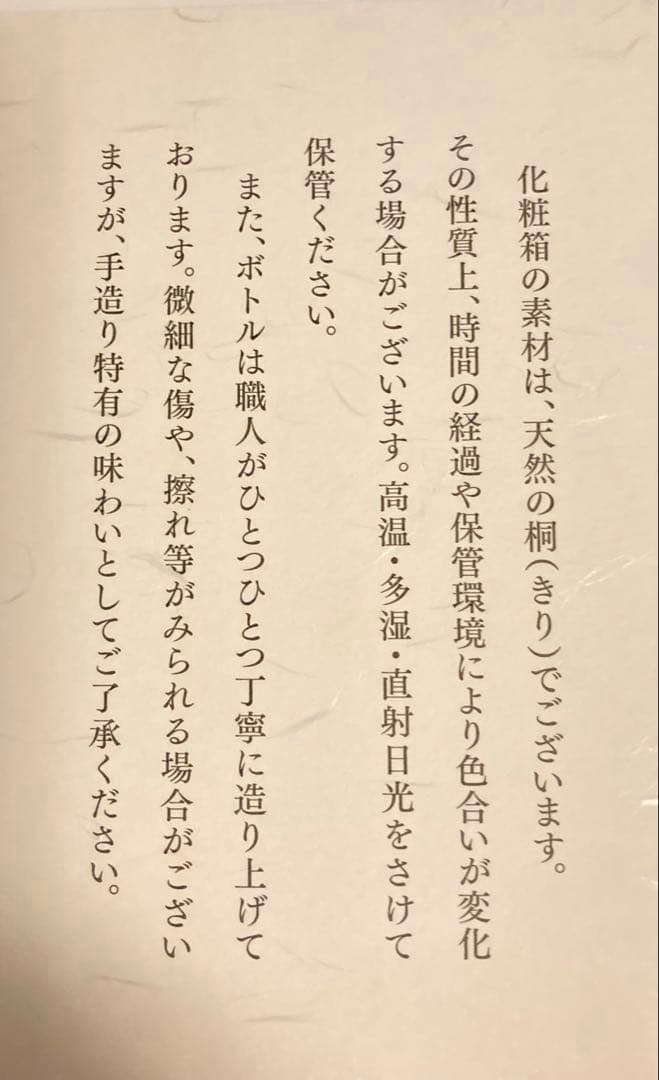 化粧箱の素材は、天然の桐（きり）でございます。
その性質上、時間の経過や保管環境により色合いが変化
する場合がございます。高温・多湿・直射日光をさけて
保管ください。
また、ボトルは職人がひとつひとつ丁寧に造り上げて
おります。微細な傷や、擦れ等がみられる場合がござい
ますが、手造り特有の味わいとしてご了承ください。